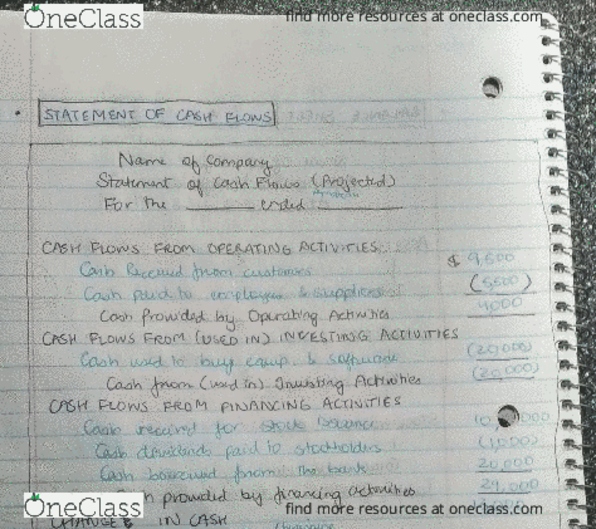 OneClass
find more resources at oneclass.com
STATEMENT OF CASH FLOWS
Name of Company
Statement of Cash Flows (Projected)
For the ________ ended ________
CASH FLOWS FROM OPERATING ACTIVITIES $ 9,500
Cash Received from customers (5,500)
Cash paid to employees & suppliers 4000
Cash Provided by Operating Activities
CASH FLOWS FROM (USED IN) INVESTING ACTIVITIES (20,000)
Cash used to buy equip. & software (20,000)
Cash from (used in) Investing Activities
CASH FLOWS FROM FINANCING ACTIVITIES
Cash received for stock issuance
Cash dividends paid to stockholders (1,000)
Cash borrowed from the bank 20,000
provided by financing activities 29,000
OneClass
find more resources at oneclass.com
IN CASH